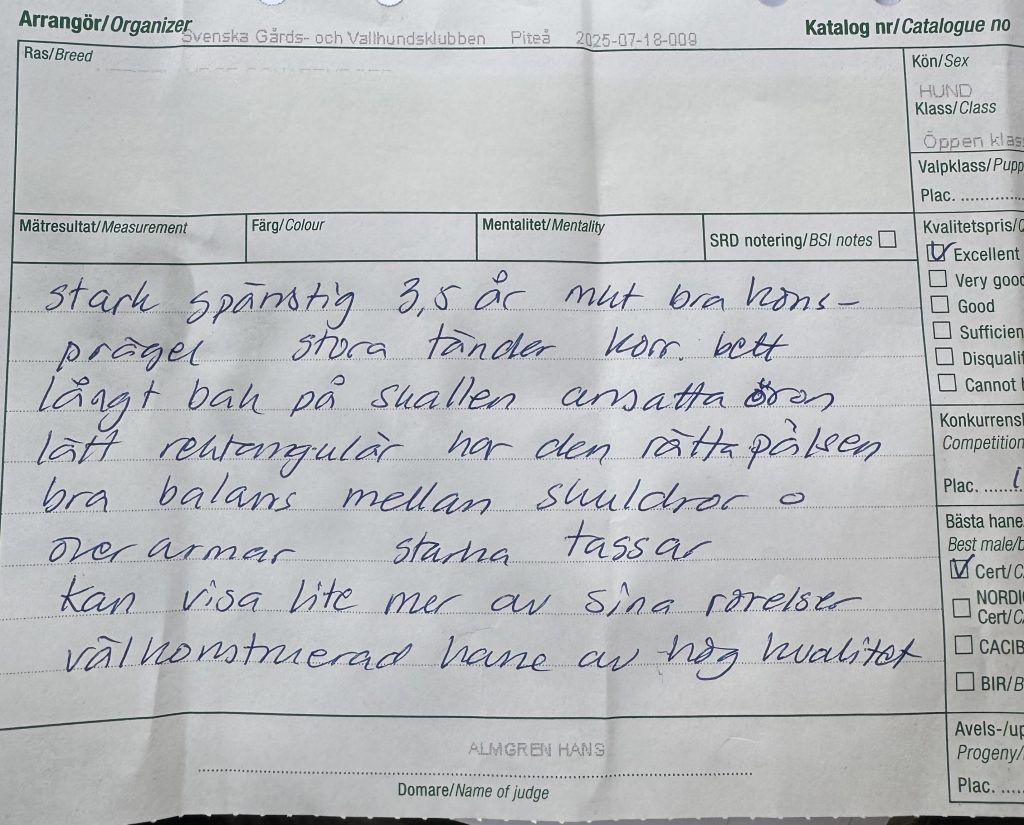 Arrangör/Organizer
Svenska Gårds- och Vallhundsklubben Piteå 2025-07-18-009
Katalog nr/Catalogue no
Ras/Breed
Kön/Sex
HUND
Klass/Class
Öppen klas
Valpklass/Pupp
Plac. ............
Mätresultat/Measurement
Färg/Colour
Mentalitet/Mentality
SRD notering/BSI notes
Kvalitetspris/
Excellent
Very good
Good
Sufficien
Disqualif
Cannot
Konkurrens
Competition
Plac. ......
Bästa hane
Best male/b
Cert/C
NORDI
Cert/C
CACIB
BIR/B
Avels-/up
Progeny/
Plac. ....
stark spänstig 3,5 år mkt bra köns-
prägel stora tänder korr. bett
långt bak på skallen ansatta öron
lätt rektangulär har den rätta pälsen
bra balans mellan skuldror o
överarmar starka tassar
kan visa lite mer av sina rörelser
välkonstruerad hane av hög kvalitet
ALMGREN HANS
Domare/Name of judge